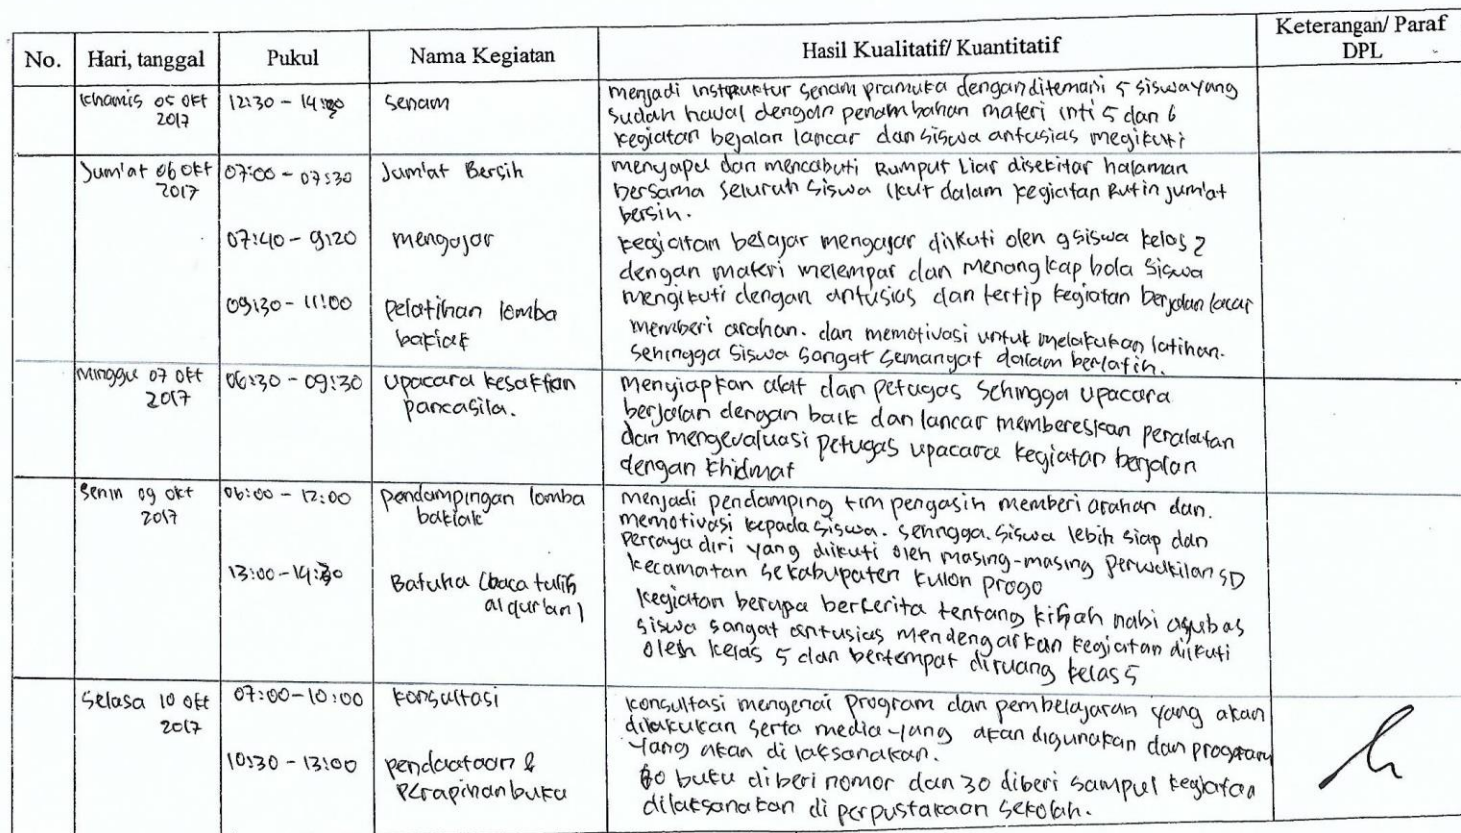 No. Hari, tanggal Pukul Nama Kegiatan Hasil Kualitatif/ Kuantitatif Keterangan/ Paraf DPL
Khamis 05 Okt 2017 12:30 - 14:30 Senam
menjadi instruktur senam pramuka dengan ditemani 5 siswa yang
sudah hawal dengan penambahan materi inti 5 dan 6
kegiatan bejalan lancar dan siswa antusias megikuti
Jum'at 06 Okt 2017 07:00 - 07:30 Jum'at Bersih
menyapu dan mencabuti Rumput Liar disekitar halaman
bersama seluruh siswa ikut dalam kegiatan Rutin jum'at
bersih.
07:40 - 9:20 mengajar
kegiatan belajar mengajar diikuti oleh 9 siswa kelas 2
dengan materi melempar dan menangkap bola siswa
mengikuti dengan antusias dan tertip kegiatan berjalan lacar
09:30 - 11:00 pelatihan lomba bakiak
memberi arahan. dan memotivasi untuk melakukan latihan.
sehingga siswa sangat semangat dalam berlatih.
Minggu 07 Okt 2017 06:30 - 09:30 Upacara kesaktian pancasila.
Menyiapkan alat dan petugas sehingga upacara
berjalan dengan baik dan lancar membereskan peralatan
dan mengevaluasi petugas upacara kegiatan berjalan
dengan khidmat
Senin 09 okt 2017 06:00 - 12:00 pendampingan lomba bakiak
menjadi pendamping tim pengasih memberi arahan dan.
memotivasi kepada siswa. sehngga. siswa lebih siap dan
percaya diri yang diikuti oleh masing-masing perwakilan SD
kecamatan sekabupaten kulon progo
13:00 - 14:30 Batuha (baca tulis al qur'an)
kegiatan berupa bercerita tentang kisah nabi
siswa sangat antusias mendengarkan kegiatan diikuti
oleh kelas 5 dan bertempat diruang kelas 5
Selasa 10 okt 2017 07:00-10:00 konsultasi
konsultasi mengenai program dan pembelajaran yang akan
dilakukan serta media yang akan digunakan dan program
yang akan di laksanakan.
10:30 - 13:00 pendaataan & perapihan buku
buku diberi nomor dan 30 diberi sampul kegiatan
dilaksanakan di perpustakaan sekolah.